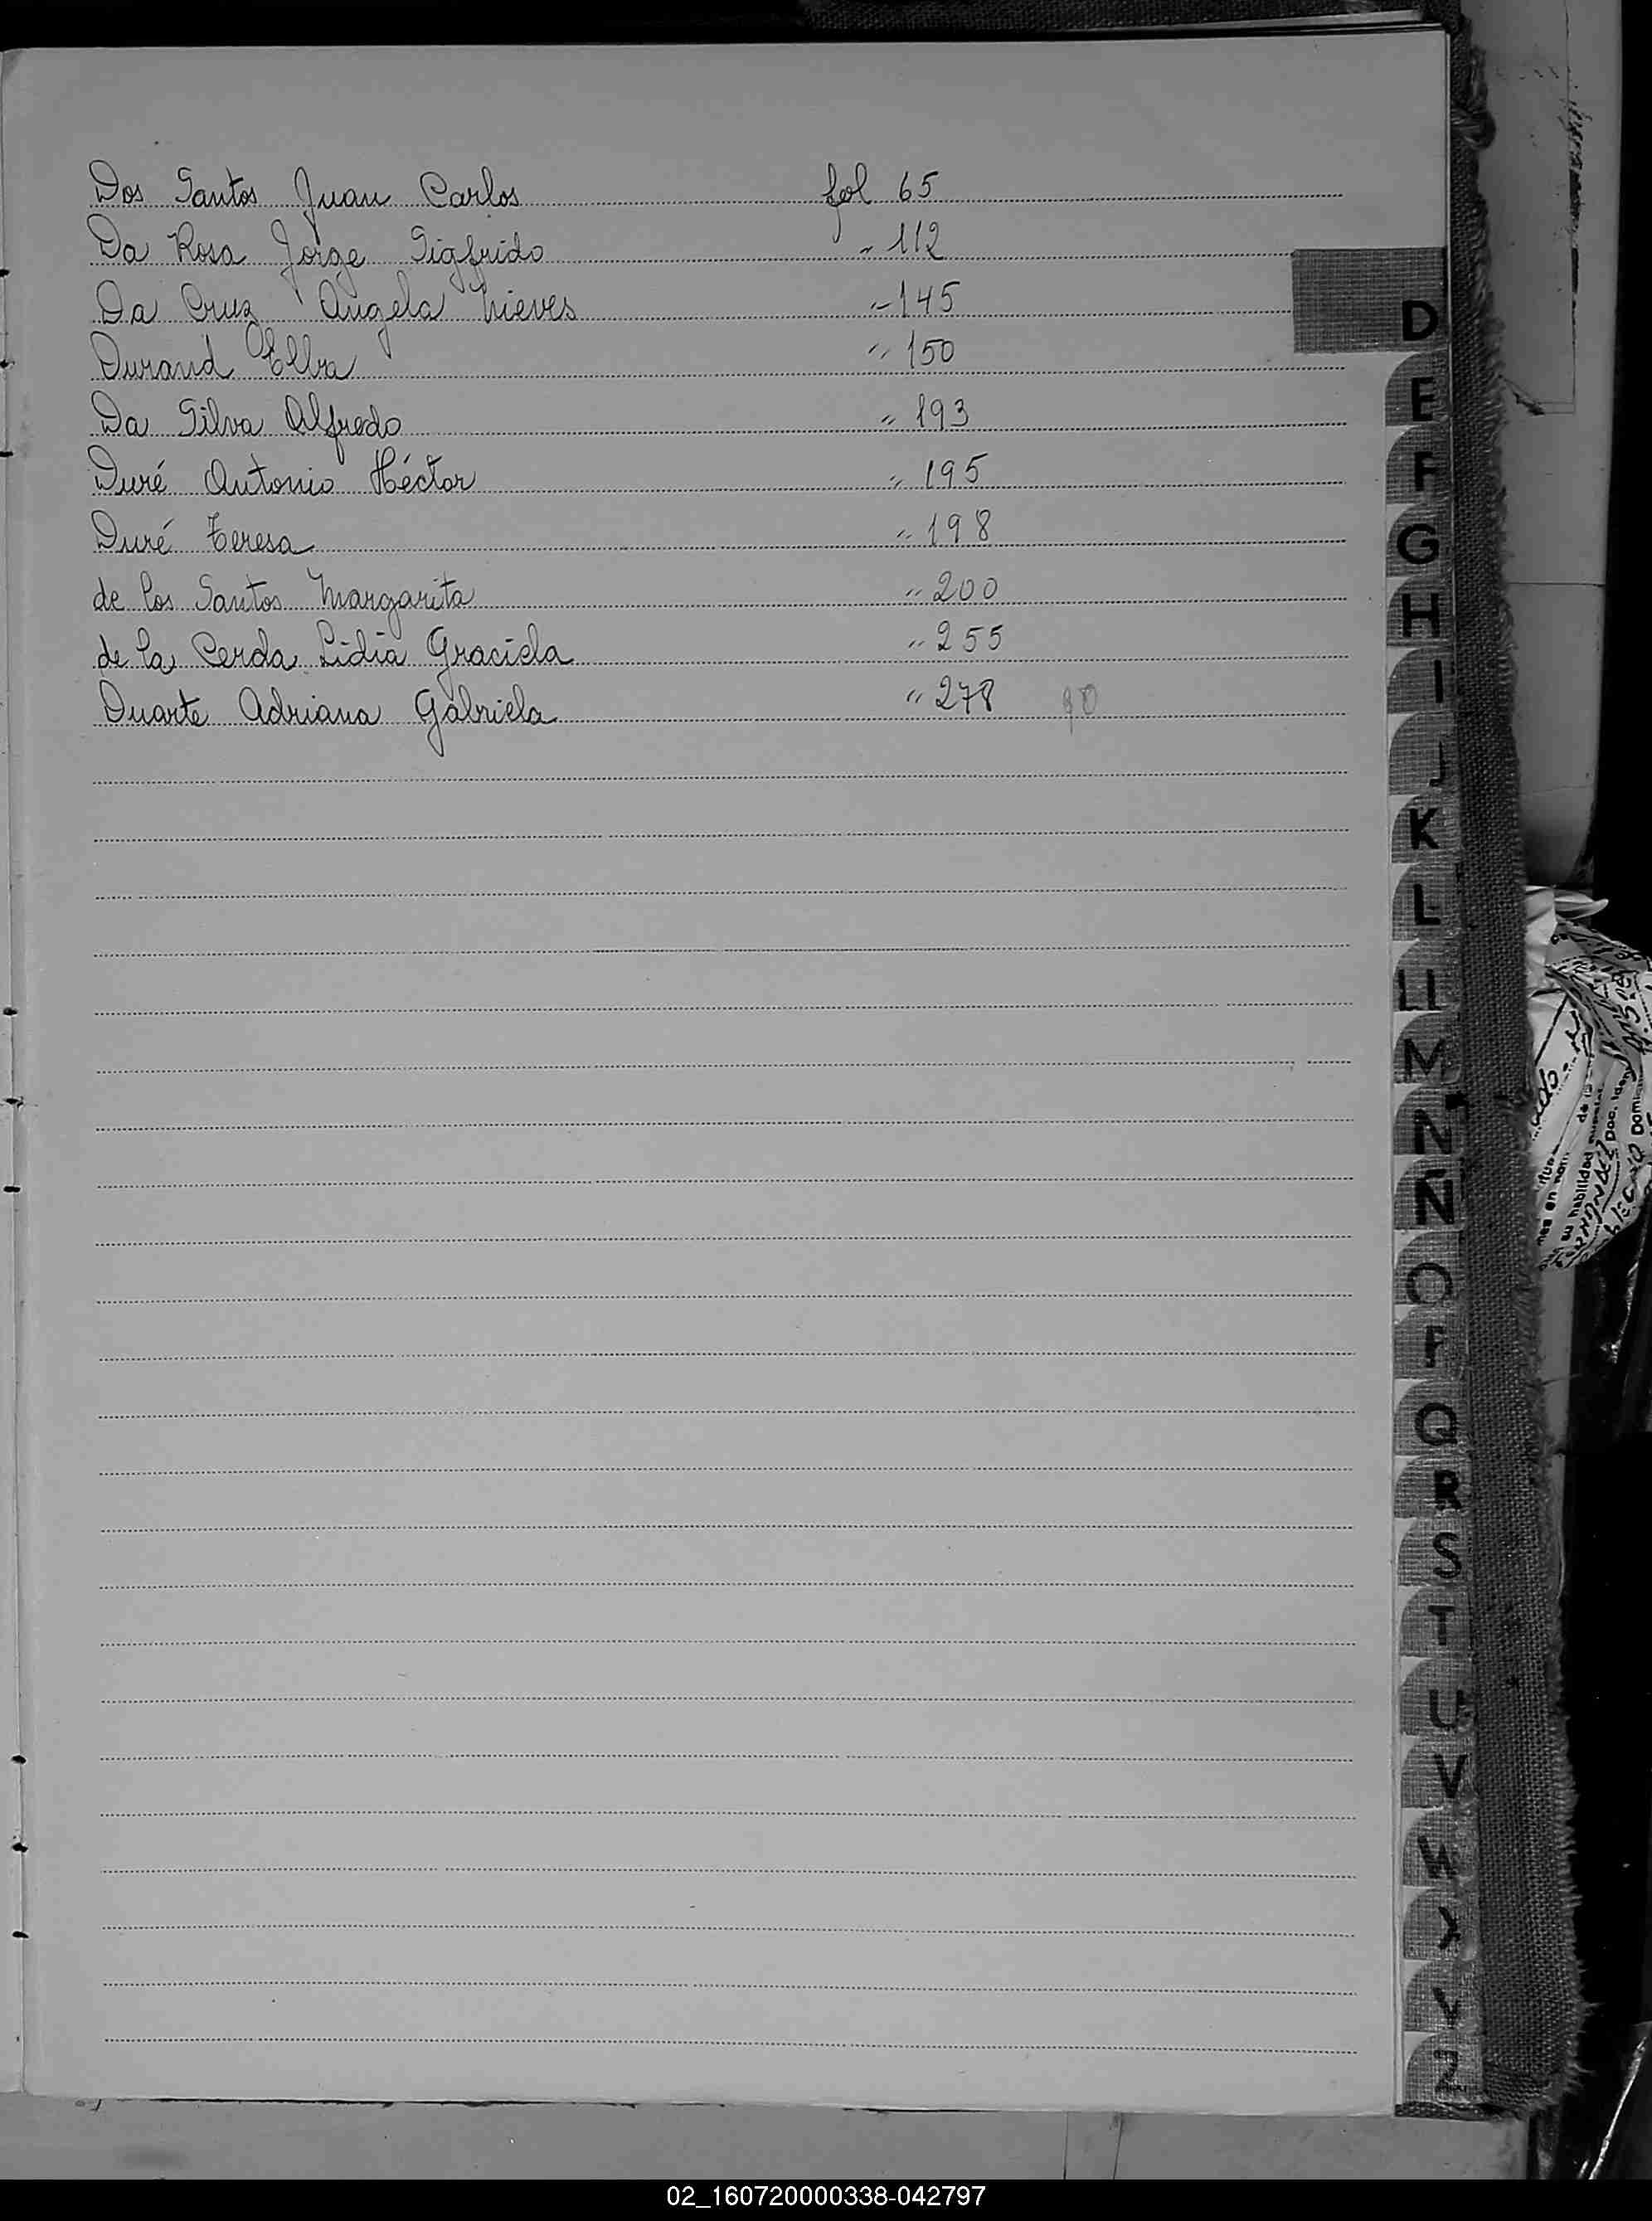 Dos Santos Juan Carlos fol 65
Da Rosa Jorge Sigfrido " 112
Da Cruz Angela Nieves " 145
Durand Elba " 150
Da Silva Alfredo " 193
Duré Antonio Héctor " 195
Duré Teresa " 198
de los Santos Margarita " 200
de la Cerda Lidia Graciela " 255
Duarte Adriana Gabriela " 278
D
E
F
G
H
I
J
K
L
Ll
M
N
Ñ
O
P
Q
R
S
T
U
V
X
Y
Z
02_160720000338-042797